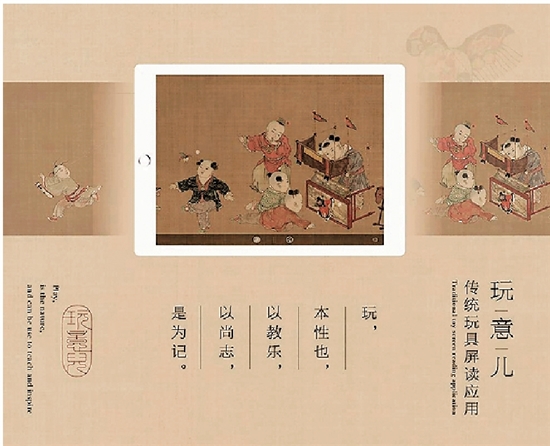 玩意儿
传统玩具屏读应用
Traditional toy screen reading application
玩，
本性也，
以教乐，
以尚志，
是为记。
Play,
is the nature,
and can be use to teach and inspire
玩意儿